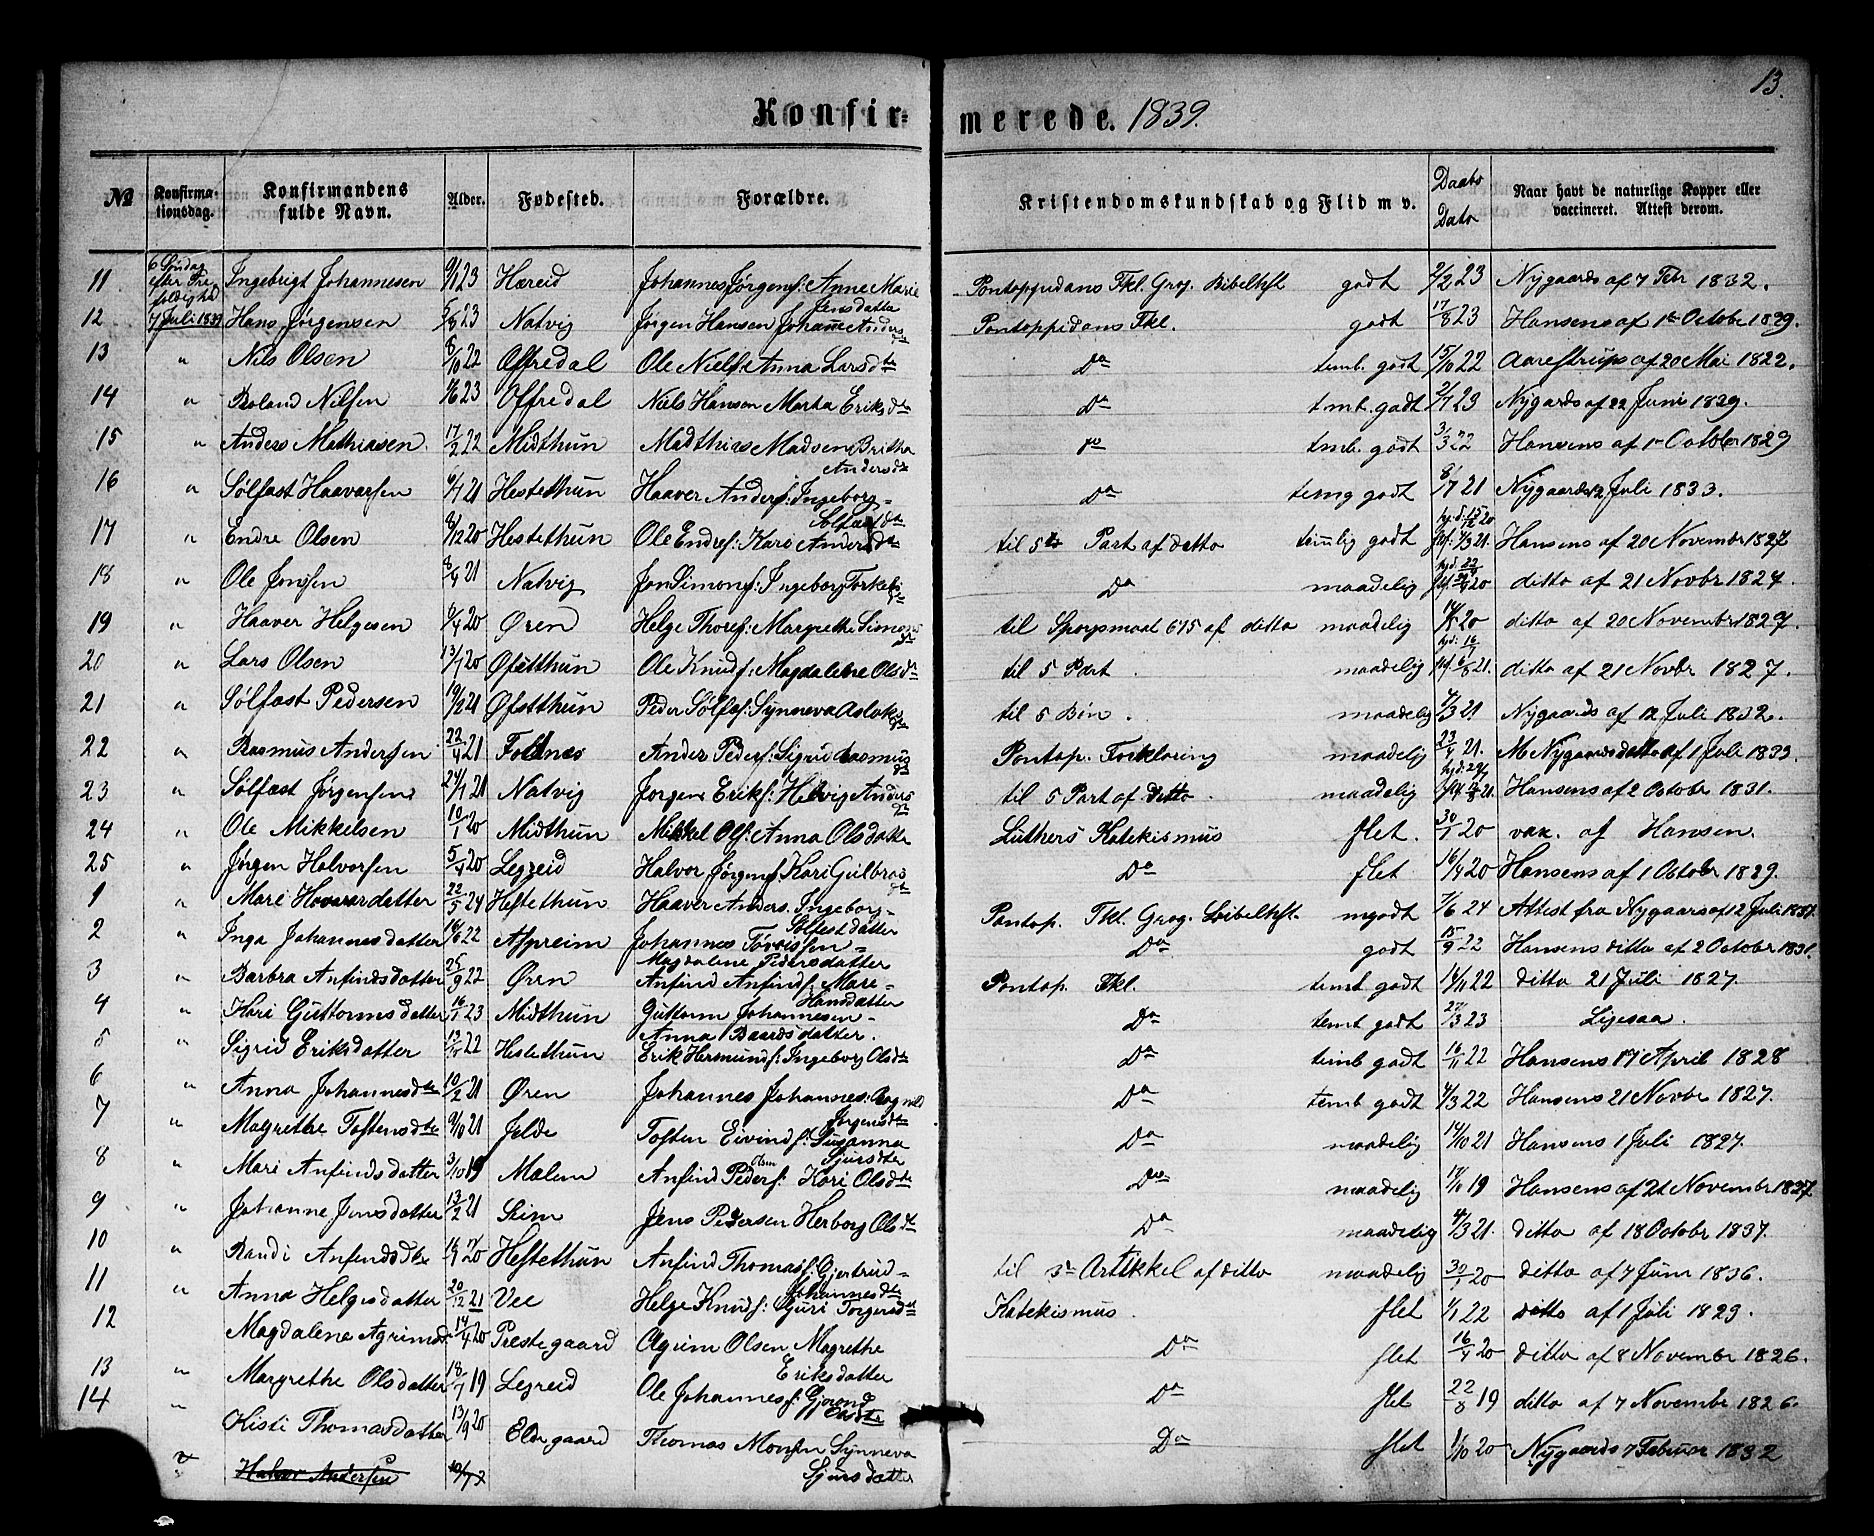 13.
Konfir- merede. 1839.
No Konfirmationsdag. Konfirmandens fulde Navn. Alder. Fødested. Forældre. Kristendomskundskab og Flid m v. Daabs Dato Naar havt de naturlige Kopper eller vaccineret. Attest derom.
11 6 Søndag efter Trefoldighed Ingebrigt Johannesen 23 Høreid Johannes Jørgens: Anne Marie Jensdatter Pontoppidans Fkl. Grog. Bibelhst godt 2/2 23 Nygaards af 7 Febr 1832.
12 7 Juli 1839 Hans Jørgensen 5/8 23 Natvig Jørgen Hansen Johanne Anders dtr Pontoppidans Fkl. godt 17/8 23 Hansens af 1ste Octobr 1829.
13 " Nils Olsen 8/10 22 Offredal Ole Niels: Anna Larsdtr Do temb. godt 15/10 22 Aarestrups af 20 Mai 1822.
14 " Roland Nilsen 23 Offredal Niels Hansen Marta Eriksdtr Do temb. godt 2/7 23 Nygaards af 22 Juni 1829.
15 " Anders Mathiasen 17/2 22 Midthun Madthias Madsen Britha Andersdtr Do temb. godt 3/3 22 Hansens af 1ste Octobr 1829
16 " Sølfast Haavorsen 6/7 21 Hestethun Haaver Anders: Ingeborg Solfastdtr Do temg godt 8/7 21 Nygaards 12 Juli 1833.
17 " Endre Olsen 8/12 20 Hestethun Ole Endres: Kari Andersdtr til 5te Part af ditto temlig godt hjd: 15/12 20 Hansens af 20 November 1827
18 " Ole Jonsen 8/4 21 Natvig Jon Simons: Ingeborg Torkels dtr Do maadelig 20 ditto af 21 Novbr 1827.
19 " Haaver Helgesen 6/4 20 Øren Helge Thores: Margrethe Simons dtr til Spørgsmaal 675 af ditto maadelig 20 ditto af 20 November 1827.
20 " Lars Olsen 13/7 20 Øfstthun Ole Knuds: Magdalene Olsdtr til 5 Part. maadelig 21. ditto af 21 Novbr 1827.
21 " Sølfast Pedersen 19/2 21 Øfstthun Peder Sølfas: Synneva Aslaks dtr til 5 Bøn. maadelig 21 Nygaards af 12 Juli 1832.
22 " Rasmus Andersen 22/4 21 Foldnes Anders Peders: Sigrid Rasmus dtr Pontop. Forklaring maadelig 23/4 21. Nygaards ditto af 1 Juli 1833.
23 " Sølfast Jørgensen 24/7 21 Natvig Jørgen Eriks: Helvig Anders dtr til 5 Part af ditto. maadelig 21. Hansens af 2 October 1831.
24 " Ole Mikkelsen 10/1 20 Midthun Mikkel Ols: Anna Olsdatter Luthers Katekismus slet. 30/1 20 vax. af Hansen.
25 " Jørgen Halvorsen 5/4 20 Legreid Halvor Jørgens: Kari Gulbras dtr Do slet 16/4 20 Hansens af 1 Octobr 1829.
1 " Mari Haavardatter 22/5 24 Hestethun Haaver Anders. Ingeborg Solfestdatter Pontop. Fkl. Grog. Bibelhst. mgodt 7/6 24 Attest fra Nygaars af 12 Juli
2 " Inga Johannesdatter 22 Aspreim Johannes Magdalene Pedersdatter Do godt 15/9 22 Hansens ditto af 2 October 1831.
3 " Barbra Anfindsdatter 25/9 22 Øren Anfind Anfinds: Mari Hansdatter Pontop. Fkl. temt godt 22 ditto 21 Juli 1827.
4 " Kari Guttormsdatter 16/1 23 Midthun Guttorm Johannesen Anna Baardsdatter. Do temt godt 23 Ligesaa.
5 " Sigrid Eriksdatter 22 Hestethun Erik Hermunds: Ingeborg Olsdtr Do temb godt 16/11 22 Hansens 17 April 1828
6 " Anna Johannesdtr 10/2 21 Øren Johannes Johannes: Ragnild Jørgensdtr Do temb godt 4/3 22 Hansens 21 Novbr 1827.
7 " Magrethe Tostensdtr 9/10 21 Jelde Tosten Eivinds: Susanna Sjursdtr Do maadelig 14/10 21 Hansens 1 Juli 1827.
8 " Mari Anfindsdatter 3/10 19 Malem Anfind Peders: Kari Olsdtr Do maadelig 19 Hansens af 21 November 1827
9 " Johanne Jensdatter 13/2 21 Seim Jens Pedersen Herborg Olsdtr Do maadelig 4/3 21. ditto af 18 Octobr 1837.
10 " Randi Anfindsdtr 20 Hestethun Anfind Thomas: Gjertrud Johannesdtr til 3die Artikkel af ditto maadelig 20 ditto af 7 Juni 1836.
11 " Anna Helgesdatter 20/12 21 Vee Helge Knuds: Guri Torgersdtr Katekismus. slet 1/1 22 ditto af 1 Juli 1829.
12 Magdalena Agrimsd 14/4 20 Prestegaard Agrim Olsen Magrethe Eriksdatter Do slet 16/4 20 ditto af 8 November 1826.
13 " Margrethe Olsdatter 18/7 19 Legreid Ole Johannes: Gjørond Do slet 22/8 19 ditto af 7 November 1826.
14 " Kisti Thomasdatter 13/9 20 Eldegaard Thomas Monsen Synneva Sjursdatter Do slet 1/10 20 Nygaards 7 Februar 1832
Halvor Andersen